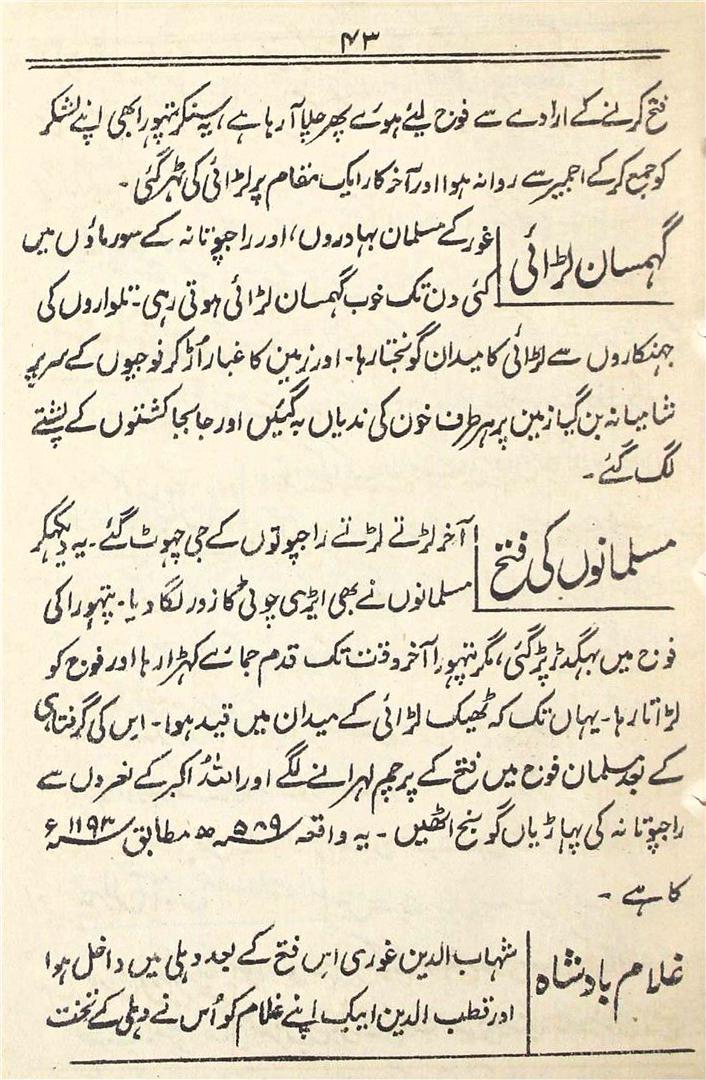 ۴۳
فتح کرنے کے ارادے سے فوج لیئے ہوئے پھر چلا آ رہا ہے، یہ سنکر پتہورا بھی اپنے لشکر
کو جمع کر کے اجمیر سے روانہ ہوا اور آخر کار ایک مقام پر لڑائی کی ٹہر گئی۔
گہمسان لڑائی
غور کے مسلمان بہادروں، اور راجپوتانہ کے سورماؤں میں
کئی دن تک خوب گہمسان لڑائی ہوتی رہی۔ تلواروں کی
جہنکاروں سے لڑائی کا میدان گونجتا رہا۔ اور زمین کا غبار اُڑ کر فوجیوں کے سر پر
شامیانہ بن گیا زمین پر ہر طرف خون کی ندیاں بہ گئیں اور جابجا کشتوں کے پشتے
لگ گئے۔
مسلمانوں کی فتح
آخر لڑتے لڑتے راجپوتوں کے جی چہوٹ گئے۔ یہ دیکہکر
مسلمانوں نے بھی ایڑی چوٹی کا زور لگا دیا۔ پتہورا کی
فوج میں بہگدڑ پڑ گئی، مگر پتہورا آخر وقت تک قدم جمائے کہڑا رہا اور فوج کو
لڑاتا رہا۔ یہاں تک کہ ٹھیک لڑائی کے میدان میں قید ہوا۔ اس کی گرفتاری
کے بعد مسلمان فوج میں فتح کے پرچم لہرانے لگے اور اللہُ اکبر کے نعروں سے
راجپوتانہ کی پہاڑیاں گونج اٹھیں۔ یہ واقعہ ۵۸۹ سنہ ھ مطابق ۱۱۹۳ سنہ ء
کا ہے۔
غلام بادشاہ
شہاب الدین غوری اس فتح کے بعد دہلی میں داخل ہوا
اور قطب الدین ایبک اپنے غلام کو اُس نے دہلی کے تخت